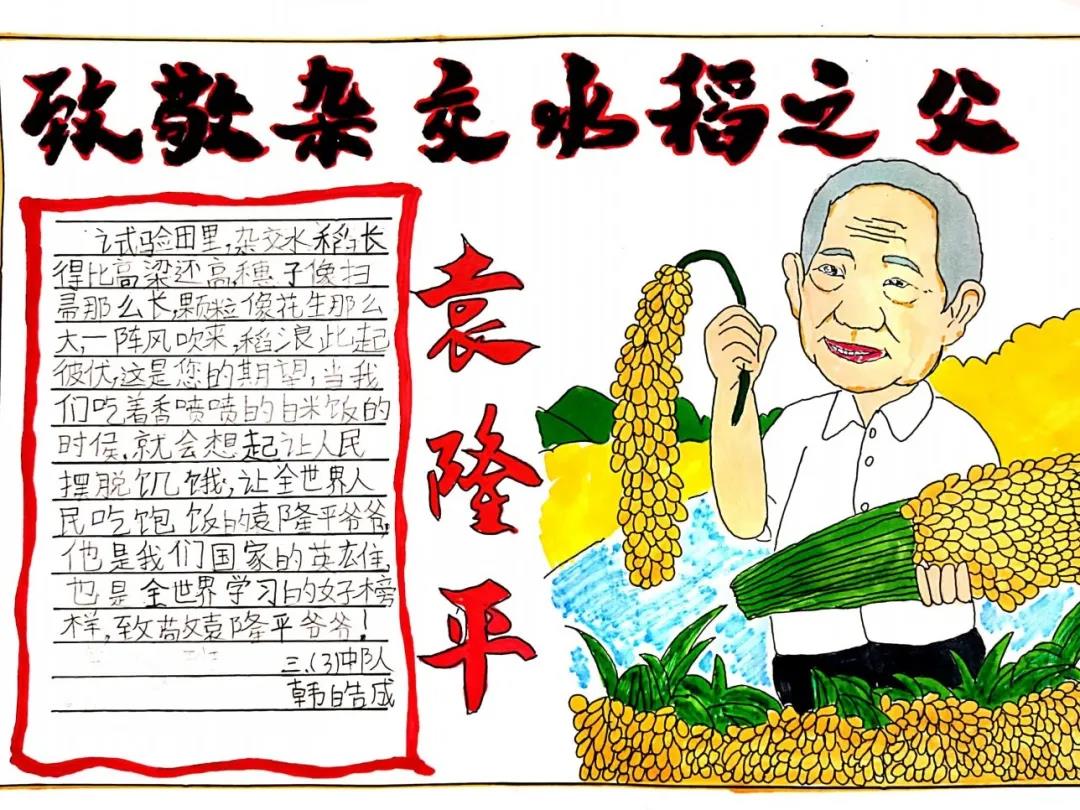 致敬杂交水稻之父
试验田里,杂交水稻长
得比高梁还高,穗子像扫
帚那么长,颗粒像花生那么
大,一阵风吹来,稻浪此起
彼伏,这是您的期望,当我
们吃着香喷喷的白米饭的
时候,就会想起让人民
摆脱饥饿,让全世界人
民吃饱饭的袁隆平爷爷,
他是我们国家的英雄,
也是全世界学习的好榜
样,致敬袁隆平爷爷!
三.(3)中队
韩皓成
袁隆平